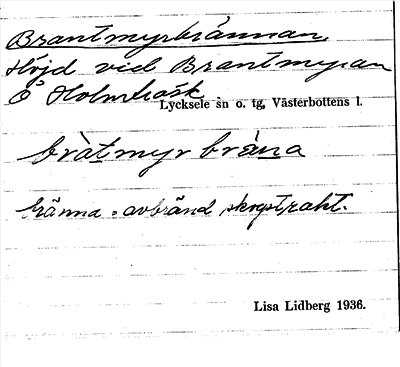 Brantmyrbrännan.
Höjd vid Brantmyran
Ö Holmträsk
Lycksele sn o. tg, Västerbottens l.
bràtmyr brèna
bränna = avbränd skogstrakt.
Lisa Lidberg 1936.